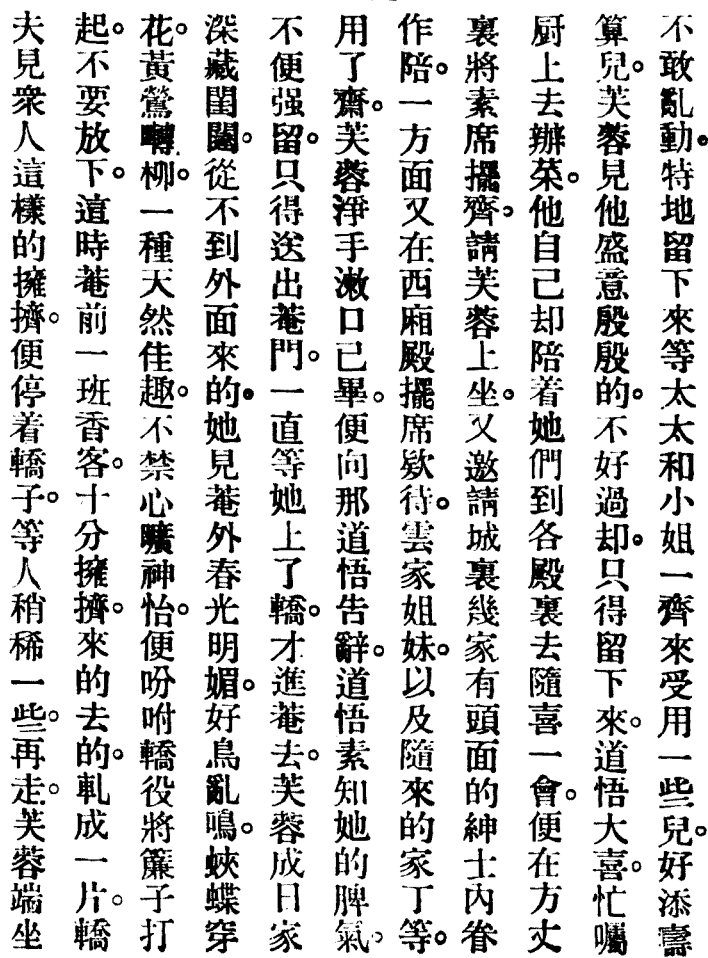 不敢亂動。特地留下來等太太和小姐一齊來受用一些兒。好添壽
算兒。芙蓉見他盛意殷殷的。不好過却。只得留下來。道悟大喜。忙囑
厨上去辦菜。他自己却陪着她們到各殿裏去隨喜一會。便在方丈
裏將素席擺齊。請芙蓉上坐。又邀請城裏幾家有頭面的紳士內眷
作陪。一方面又在西廂殿擺席欵待。雲家姐妹。以及隨來的家丁等。
用了齋。芙蓉淨手漱口已畢。便向那道悟告辭。道悟素知她的脾氣。
不便强留。只得送出菴門。一直等她上了轎。才進菴去。芙蓉成日家
深藏閨闥。從不到外面來的。她見菴外春光明媚。好鳥亂鳴。蛺蝶穿
花。黃鶯囀柳。一種天然佳趣。不禁心曠神怡。便吩咐轎役將簾子打
起。不要放下。這時菴前一班香客。十分擁擠。來的去的。軋成一片。轎
夫見衆人這樣的擁擠。便停着轎子。等人稍稀一些。再走。芙蓉端坐